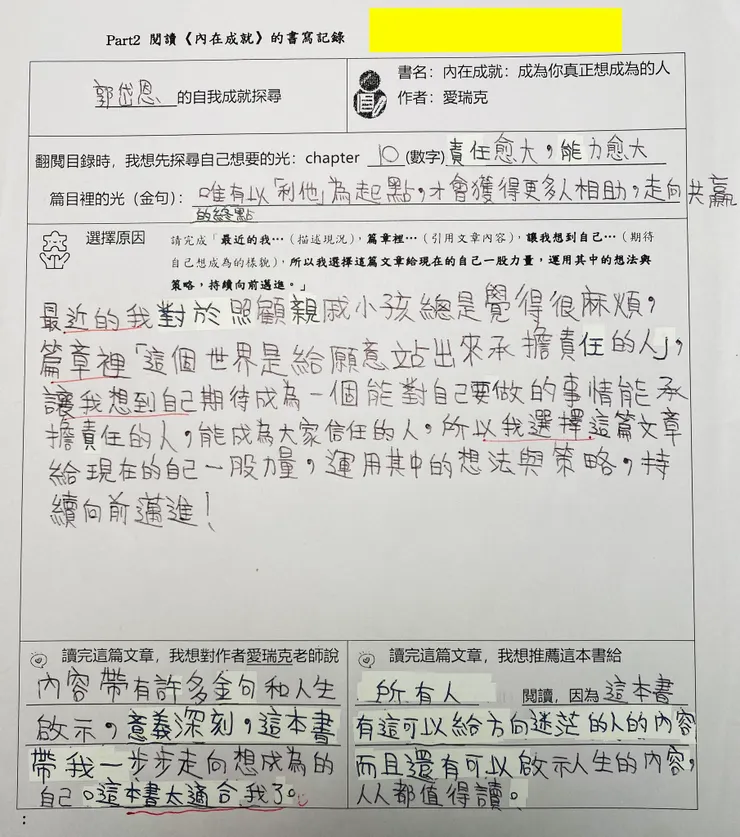 Part2 閱讀《內在成就》的書寫記錄
郭岱恩 的自我成就探尋
書名：內在成就：成為你真正想成為的人
作者：愛瑞克
翻閱目錄時，我想先探尋自己想要的光：chapter 10 (數字) 責任愈大，能力愈大
篇目裡的光（金句）：唯有以「利他」為起點，才會獲得更多人相助，走向共贏
的終點
選擇原因
請完成「最近的我…（描述現況），篇章裡…（引用文章內容），讓我想到自己…（期待
自己想成為的樣貌），所以我選擇這篇文章給現在的自己一股力量，運用其中的想法與
策略，持續向前邁進。」
最近的我對於照顧親戚小孩總是覺得很麻煩，
篇章裡「這個世界是給願意站出來承擔責任的人」，
讓我想到自己期待成為一個能對自己要做的事情能承
擔責任的人，能成為大家信任的人，所以我選擇這篇文章
給現在的自己一股力量，運用其中的想法與策略，持
續向前邁進！
讀完這篇文章，我想對作者愛瑞克老師說
內容帶有許多金句和人生
啟示，意義深刻，這本書
帶我一步步走向想成為的
自己。這本書太適合我了。
讀完這篇文章，我想推薦這本書給
所有人 閱讀，因為 這本書
有這可以給方向迷茫的人的內容
而且還有可以啟示人生的內容，
人人都值得讀。